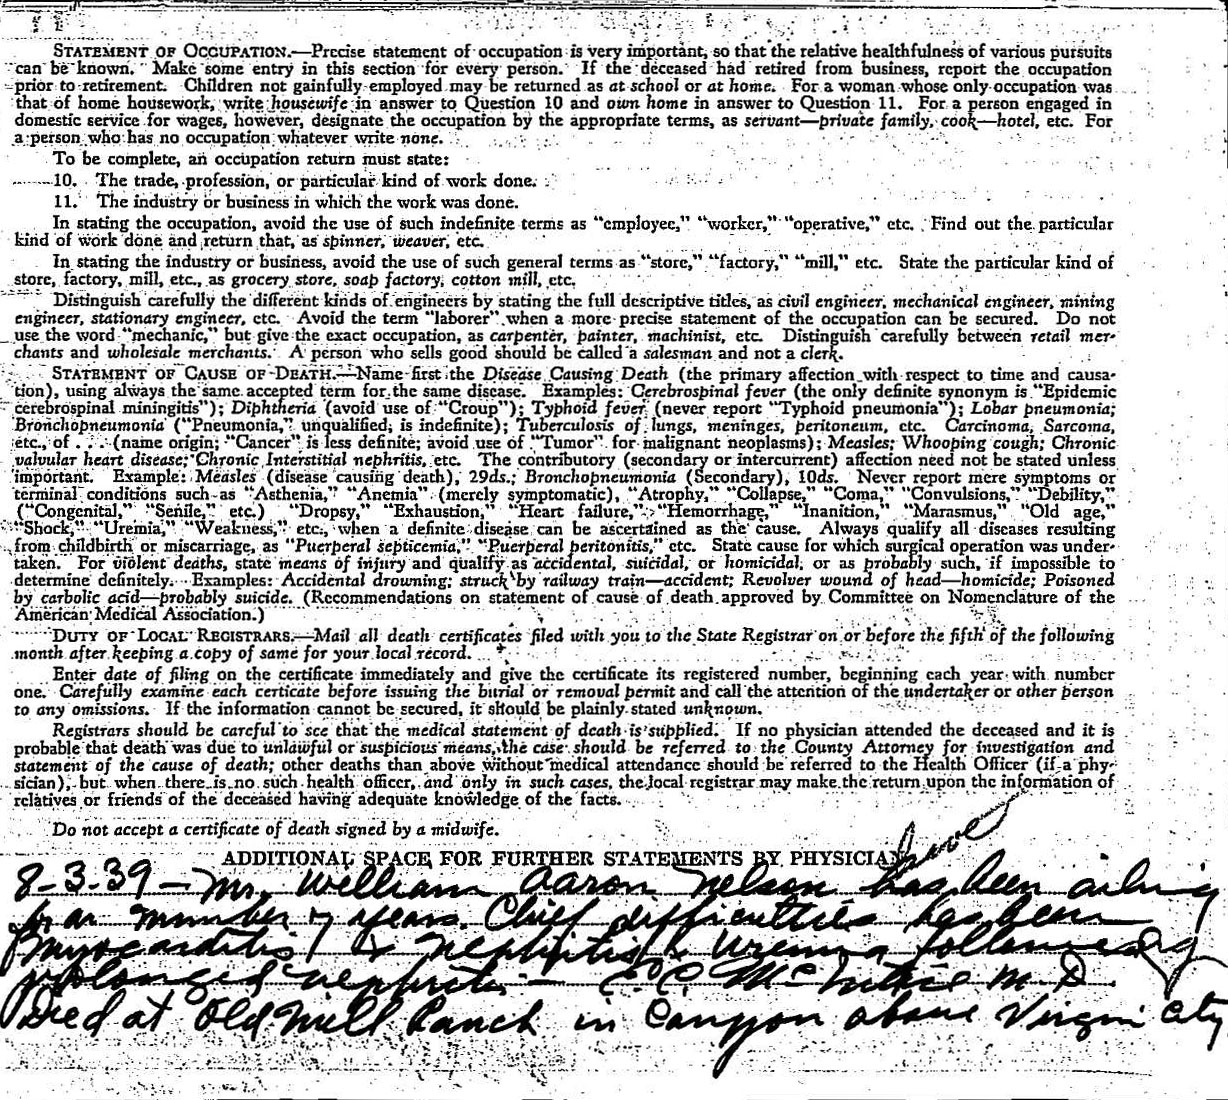 STATEMENT OF OCCUPATION.—Precise statement of occupation is very important, so that the relative healthfulness of various pursuits
can be known. Make some entry in this section for every person. If the deceased had retired from business, report the occupation
prior to retirement. Children not gainfully employed may be returned as at school or at home. For a woman whose only occupation was
that of home housework, write housewife in answer to Question 10 and own home in answer to Question 11. For a person engaged in
domestic service for wages, however, designate the occupation by the appropriate terms, as servant—private family, cook—hotel, etc. For
a person who has no occupation whatever write none.
To be complete, an occupation return must state:
10. The trade, profession, or particular kind of work done.
11. The industry or business in which the work was done.
In stating the occupation, avoid the use of such indefinite terms as “employee,” “worker,” “operative,” etc. Find out the particular
kind of work done and return that, as spinner, weaver, etc.
In stating the industry or business, avoid the use of such general terms as “store,” “factory,” “mill,” etc. State the particular kind of
store, factory, mill, etc., as grocery store, soap factory, cotton mill, etc.
Distinguish carefully the different kinds of engineers by stating the full descriptive titles, as civil engineer, mechanical engineer, mining
engineer, stationary engineer, etc. Avoid the term “laborer” when a more precise statement of the occupation can be secured. Do not
use the word “mechanic,” but give the exact occupation, as carpenter, painter, machinist, etc. Distinguish carefully between retail mer-
chants and wholesale merchants. A person who sells good should be called a salesman and not a clerk.
STATEMENT OF CAUSE OF DEATH.—Name first the Disease Causing Death (the primary affection with respect to time and causa-
tion), using always the same accepted term for the same disease. Examples: Cerebrospinal fever (the only definite synonym is “Epidemic
cerebrospinal miningitis”); Diphtheria (avoid use of “Croup”); Typhoid fever (never report “Typhoid pneumonia”); Lobar pneumonia;
Bronchopneumonia (“Pneumonia,” unqualified, is indefinite); Tuberculosis of lungs, meninges, peritoneum, etc. Carcinoma, Sarcoma,
etc., of . . . (name origin; “Cancer” is less definite; avoid use of “Tumor” for malignant neoplasms); Measles; Whooping cough; Chronic
valvular heart disease; Chronic Interstitial nephritis, etc. The contributory (secondary or intercurrent) affection need not be stated unless
important. Example: Measles (disease causing death), 29ds.; Bronchopneumonia (Secondary), 10ds. Never report mere symptoms or
terminal conditions such as “Asthenia,” “Anemia” (merely symptomatic), “Atrophy,” “Collapse,” “Coma,” “Convulsions,” “Debility,”
(“Congenital,” “Senile,” etc.) “Dropsy,” “Exhaustion,” “Heart failure,” “Hemorrhage,” “Inanition,” “Marasmus,” “Old age,”
“Shock,” “Uremia,” “Weakness,” etc., when a definite disease can be ascertained as the cause. Always qualify all diseases resulting
from childbirth or miscarriage, as “Puerperal septicemia,” “Puerperal peritonitis,” etc. State cause for which surgical operation was under-
taken. For violent deaths, state means of injury and qualify as accidental, suicidal, or homicidal, or as probably such, if impossible to
determine definitely. Examples: Accidental drowning; struck by railway train—accident; Revolver wound of head—homicide; Poisoned
by carbolic acid—probably suicide. (Recommendations on statement of cause of death approved by Committee on Nomenclature of the
American Medical Association.)
DUTY OF LOCAL REGISTRARS.—Mail all death certificates filed with you to the State Registrar on or before the fifth of the following
month after keeping a copy of same for your local record.
Enter date of filing on the certificate immediately and give the certificate its registered number, beginning each year with number
one. Carefully examine each certicate before issuing the burial or removal permit and call the attention of the undertaker or other person
to any omissions. If the information cannot be secured, it should be plainly stated unknown.
Registrars should be careful to see that the medical statement of death is supplied. If no physician attended the deceased and it is
probable that death was due to unlawful or suspicious means, the case should be referred to the County Attorney for investigation and
statement of the cause of death; other deaths than above without medical attendance should be referred to the Health Officer (if a phy-
sician), but when there is no such health officer, and only in such cases, the local registrar may make the return upon the information of
relatives or friends of the deceased having adequate knowledge of the facts.
Do not accept a certificate of death signed by a midwife.
ADDITIONAL SPACE FOR FURTHER STATEMENTS BY PHYSICIAN
have
8-3-39 — Mr. William Aaron Nelson has been ailing
for a number of years. Chief difficulties has been
myocarditis & nephritis & uremia following
prolonged nephritis — M.D.
Died at Old Mill Ranch in Canyon above Virgin City